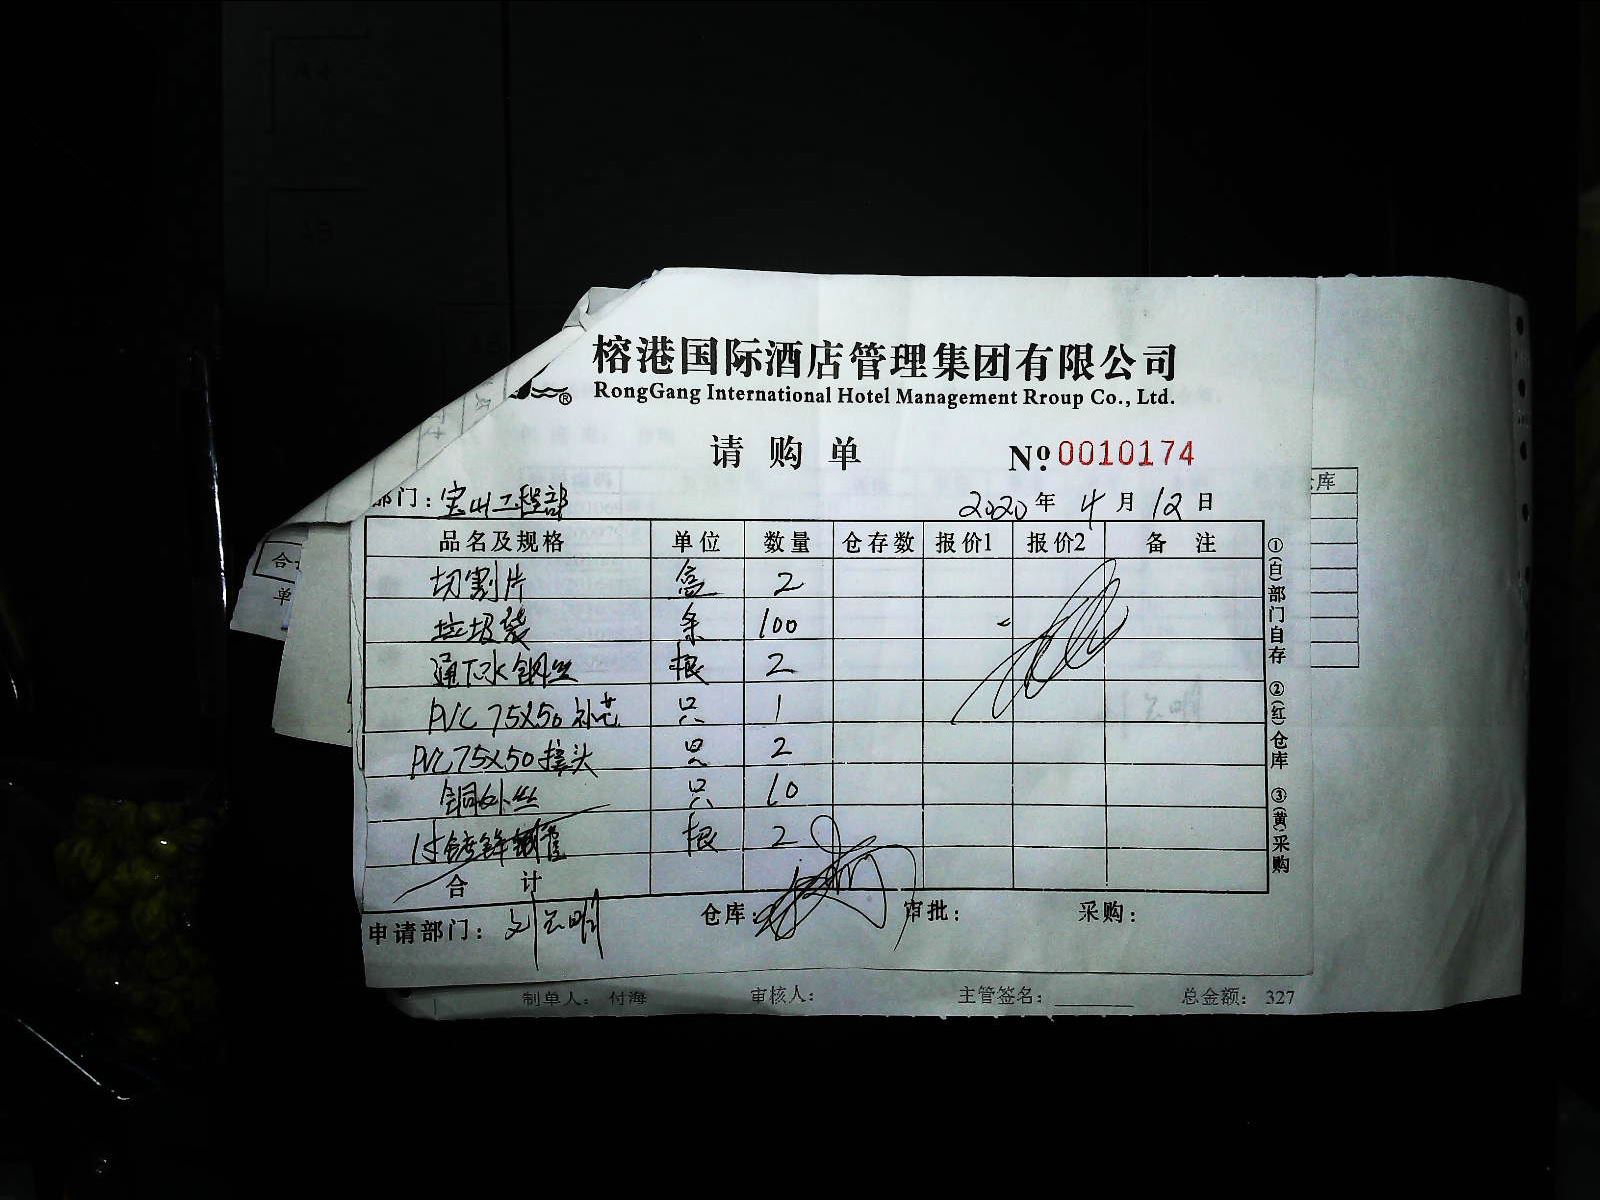 榕港国际酒店管理集团有限公司
®
RongGang International Hotel Management Rroup Co., Ltd.
请购单 №0010174
部门：宝山工程部 2020年4月12日
品名及规格 单位 数量 仓存数 报价1 报价2 备注
切割片 盒 2
垃圾袋 条 100
通下水钢丝 根 2
PVC 75X50 补芯 只 1
PVC 75X50 接头 只 2
铜外丝 只 10
1寸镀锌钢管 根 2
合计
申请部门： 仓库： 审批： 采购：
①(白)部门自存 ②(红)仓库 ③(黄)采购
制单人： 付海 审核人： 主管签名： 总金额： 327
仓库
合
单